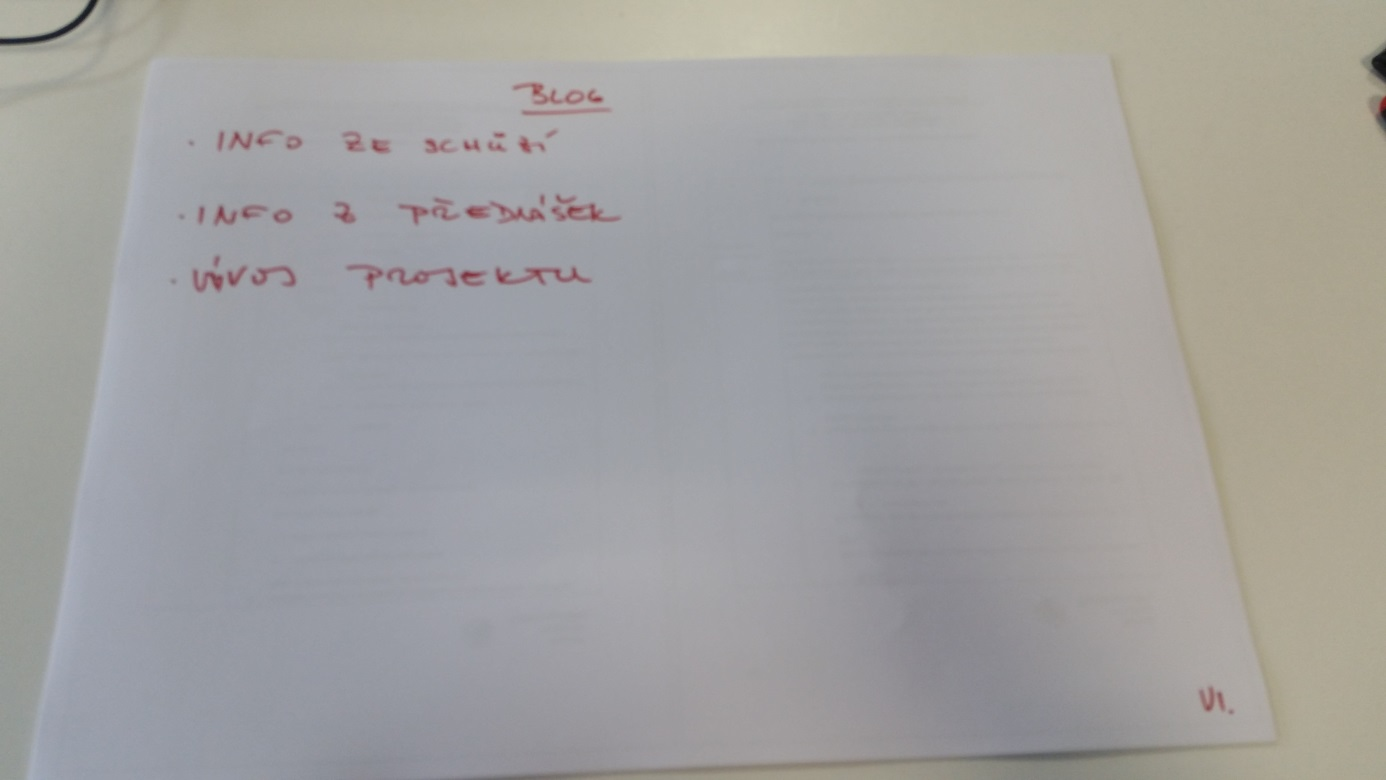 BLOG
· INFO ZE SCHŮZÍ
· INFO Z PŘEDNÁŠEK
· VÝVOJ PROJEKTU
VI.